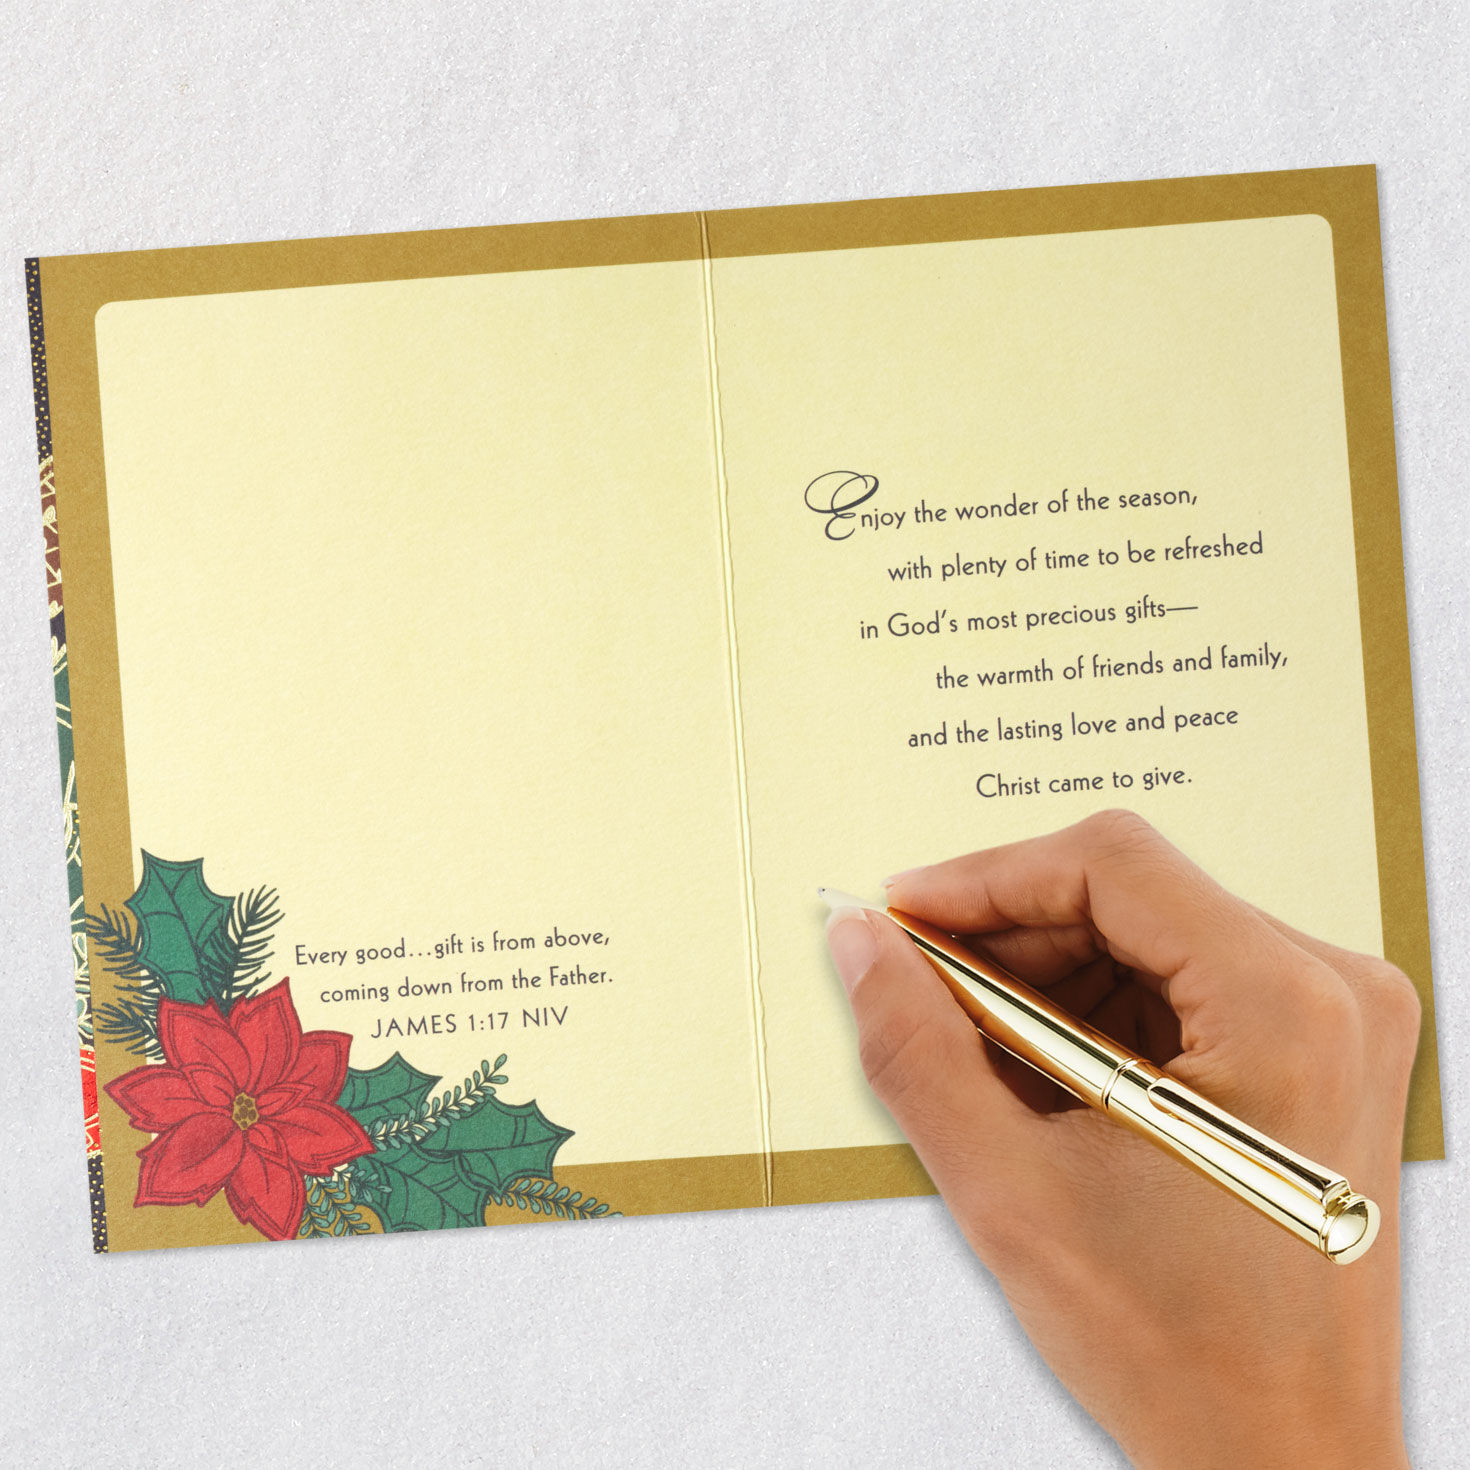 Every good...gift is from above,
coming down from the Father.
JAMES 1:17 NIV
Enjoy the wonder of the season,
with plenty of time to be refreshed
in God's most precious gifts—
the warmth of friends and family,
and the lasting love and peace
Christ came to give.